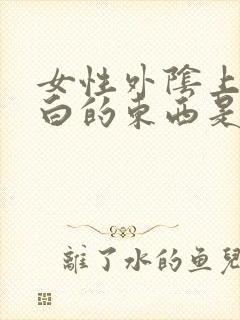 女性外陰上
白的东西是
離了水的鱼兒